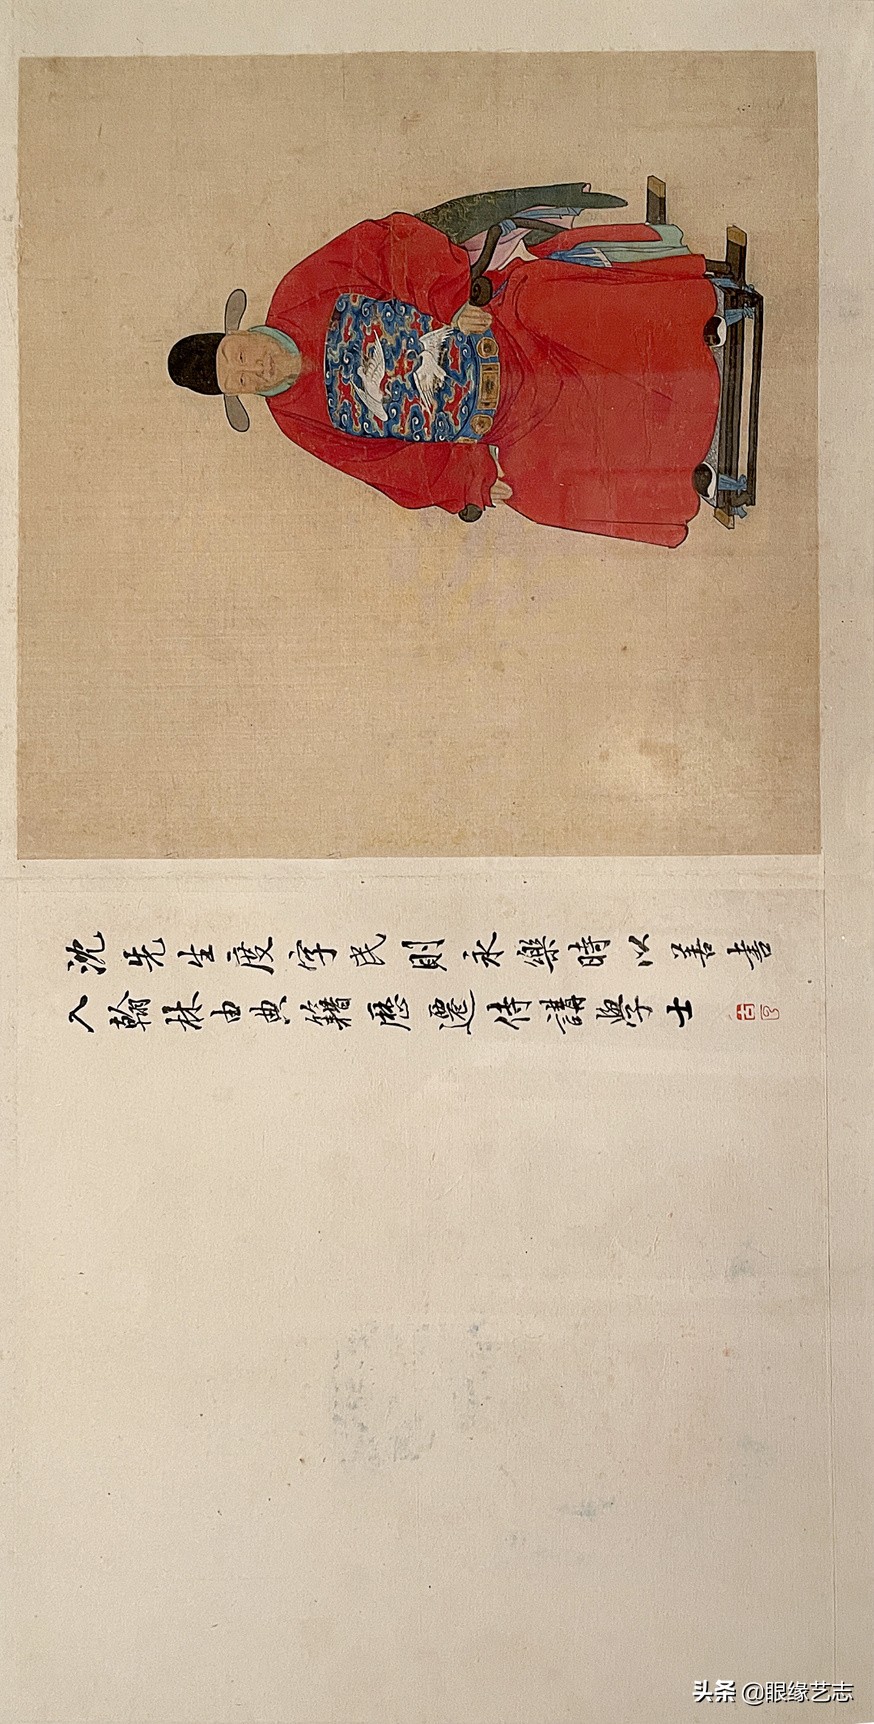 沈先生度字民則永樂時以善書
入翰林由典籍歷遷侍講學士
头条 @眼缘艺志